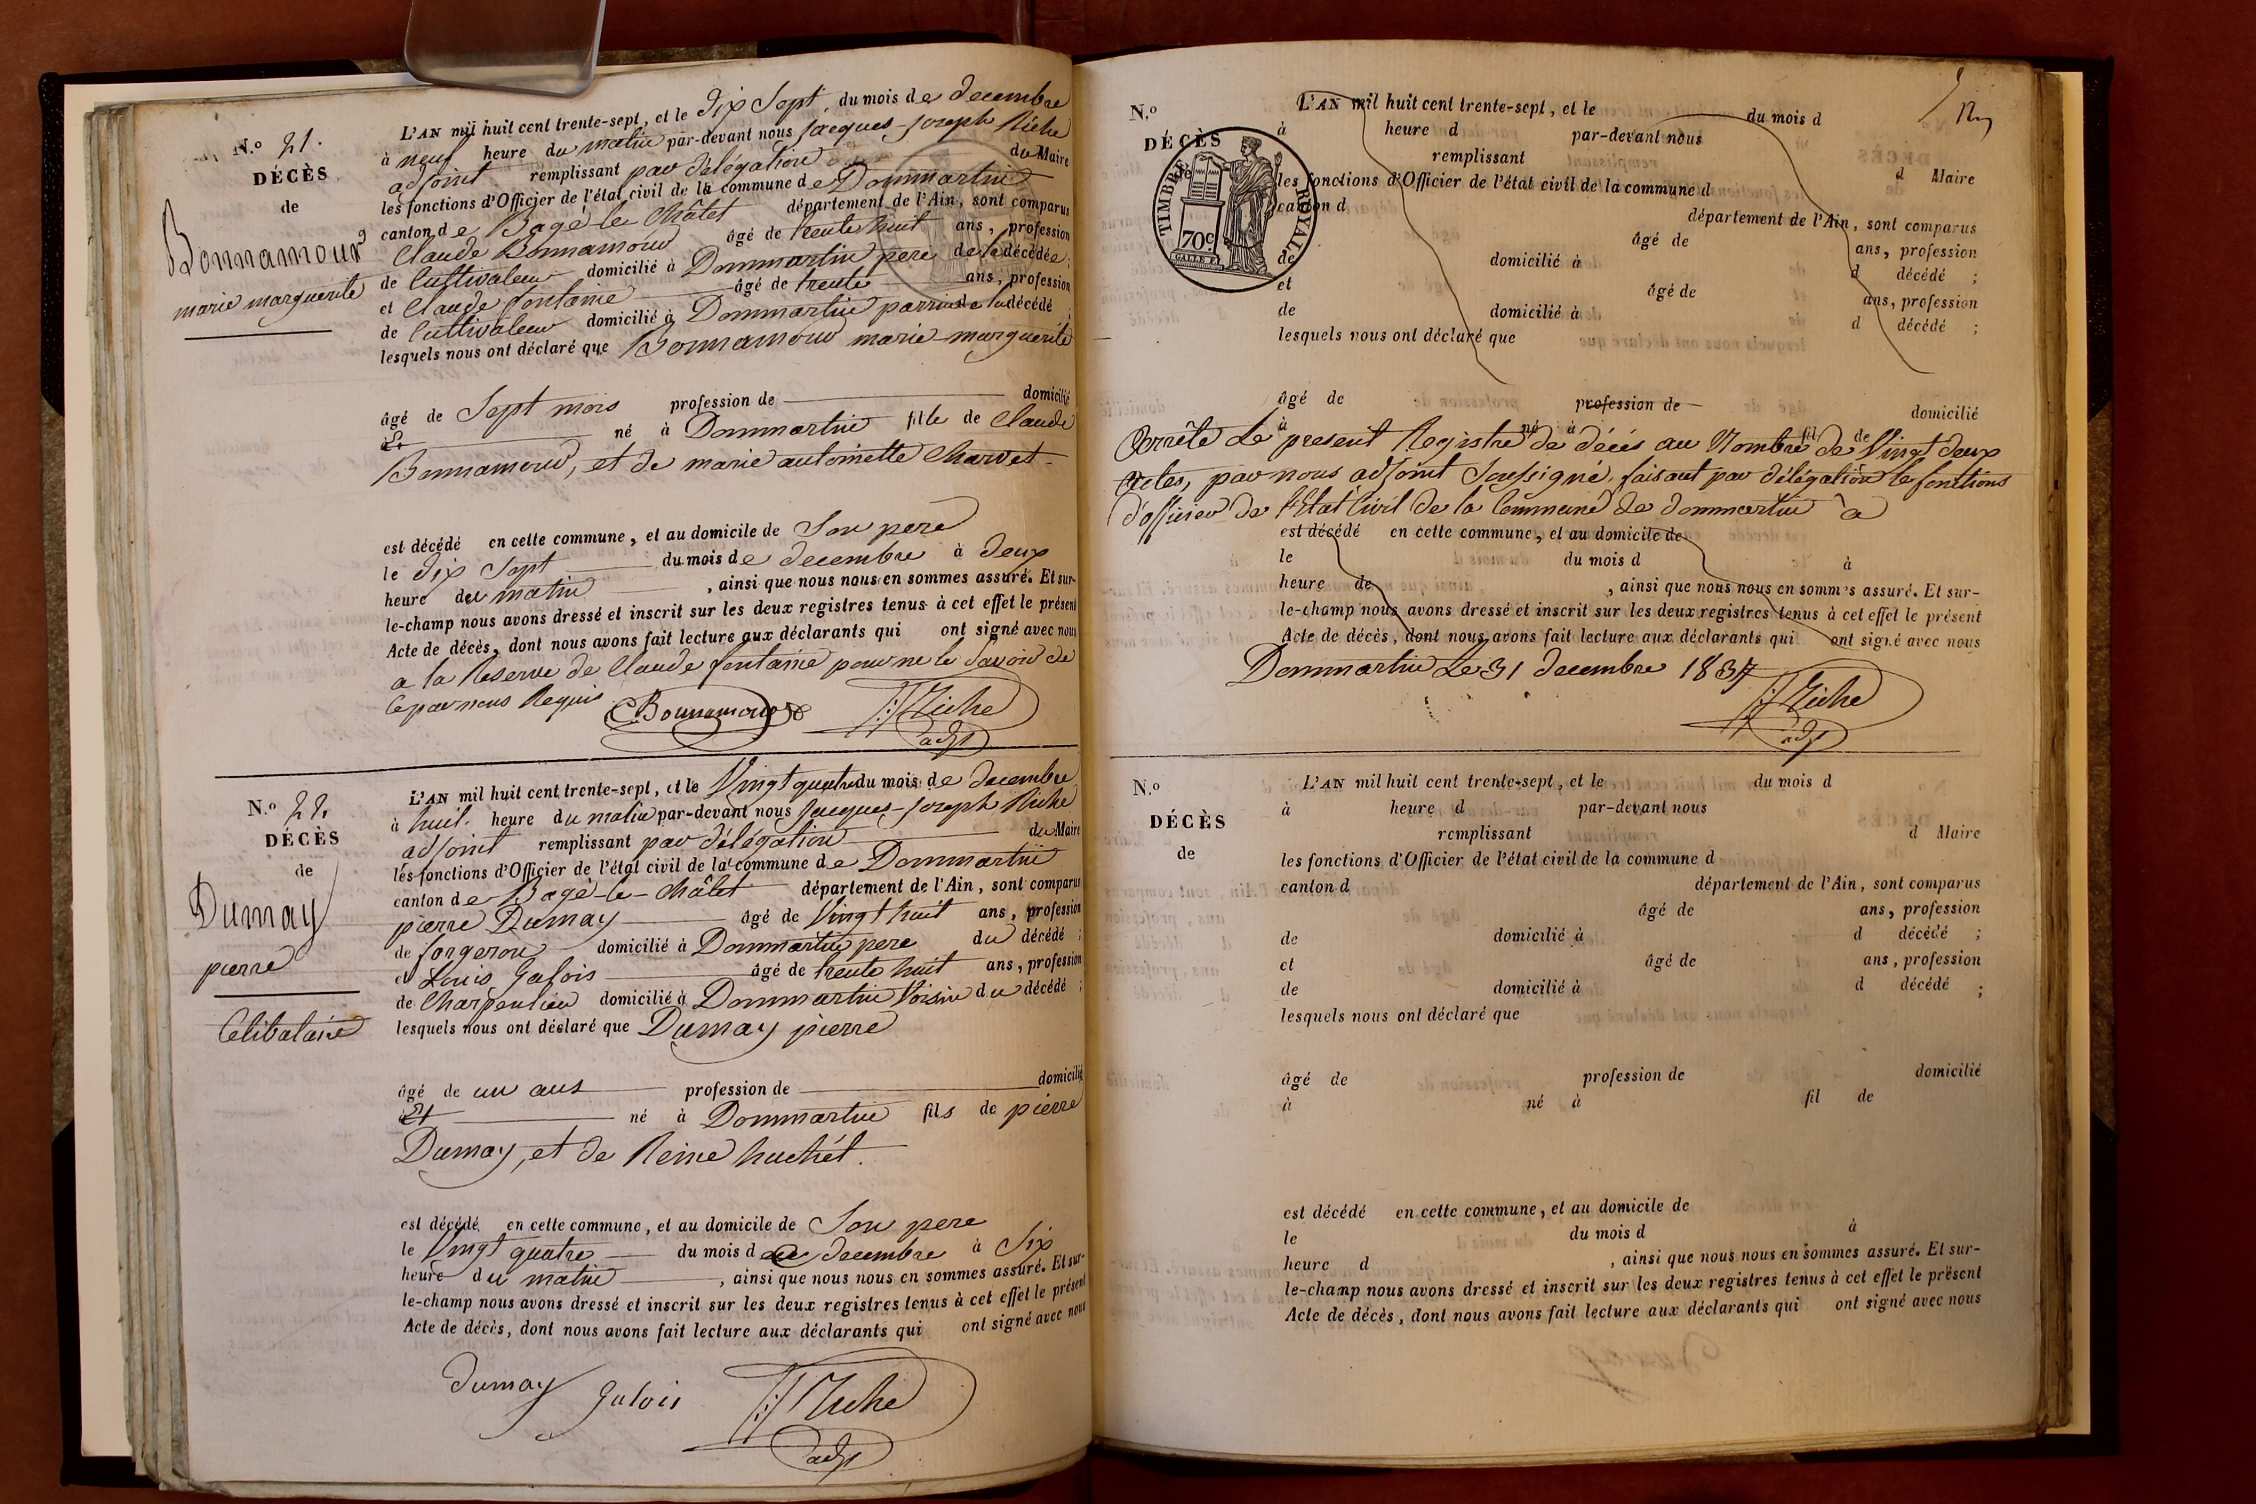 N.º 21.
DÉCÈS
de
Bonnamour
marie marguerite
L'AN mil huit cent trente-sept, et le dix Sept, du mois de decembre
à neuf heure du matin par-devant nous Jacques-Joseph Riche
adjoint remplissant par délégation du Maire
les fonctions d'Officier de l'état civil de la commune de Dommartin
canton de Bagé le Châtel département de l'Ain, sont comparus
Claude Bonnamour âgé de trente huit ans, profession
de Cultivateur domicilié à Dommartin pere de la décédée;
et Claude fontaine âgé de trente ans, profession
de Cultivateur domicilié à Dommartin parrain de la décédé;
lesquels nous ont déclaré que Bonnamour marie marguerite
âgé de Sept mois profession de domicilié
à né à Dommartin fille de Claude
Bonnamour, et de marie antoinette Charvet
est décédé en cette commune, et au domicile de Son pere
le dix Sept du mois de decembre à deux
heure du matin, ainsi que nous nous en sommes assuré. Et sur-
le-champ nous avons dressé et inscrit sur les deux registres tenus à cet effet le présent
Acte de décès, dont nous avons fait lecture aux déclarants qui ont signé avec nous
a la Reserve de Claude fontaine pour ne le Savoir de
Ce par nous Requis
Bonnamour JJ Riche
adjt
N.º 22.
DÉCÈS
de
Dumay
pierre
Celibataire
L'AN mil huit cent trente-sept, et le Vingt quatre du mois de decembre
à huit heure du matin par-devant nous Jacques-Joseph Riche
adjoint remplissant par délégation du Maire
les fonctions d'Officier de l'état civil de la commune de Dommartin
canton de Bagé-le-Châtel département de l'Ain, sont comparus
pierre Dumay âgé de Vingt huit ans, profession
de forgeron domicilié à Dommartin pere du décédé;
et Louis Galois âgé de trente huit ans, profession
de Charpentier domicilié à Dommartin Voisin du décédé;
lesquels nous ont déclaré que Dumay pierre
âgé de un ans profession de domicilié
à né à Dommartin fils de pierre
Dumay, et de Reine huchet.
est décédé en cette commune, et au domicile de Son pere
le Vingt quatre du mois de decembre à Six
heure du matin, ainsi que nous nous en sommes assuré. Et sur-
le-champ nous avons dressé et inscrit sur les deux registres tenus à cet effet le présent
Acte de décès, dont nous avons fait lecture aux déclarants qui ont signé avec nous
Dumay Galois JJ Riche
adjt
N.º
DÉCÈS
TIMBRE ROYAL
70c
de
L'AN mil huit cent trente-sept, et le du mois d
à heure d par-devant nous
remplissant d Maire
les fonctions d'Officier de l'état civil de la commune d
canton d département de l'Ain, sont comparus
âgé de ans, profession
de domicilié à d décédé;
et âgé de ans, profession
de domicilié à d décédé;
lesquels nous ont déclaré que
âgé de profession de domicilié
à né à fil de
Arrêté Le present Registre de décés au Nombre de Vingt deux
Actes, par nous adjoint Soussigné, faisant par délégation les fonctions
d'officier de l'Etat Civil de la Commune de Dommartin a
est décédé en cette commune, et au domicile de
le du mois d à
heure de, ainsi que nous nous en sommes assuré. Et sur-
le-champ nous avons dressé et inscrit sur les deux registres tenus à cet effet le présent
Acte de décès, dont nous avons fait lecture aux déclarants qui ont signé avec nous
Dommartin Le 31 decembre 1837
JJ Riche
adjt
N.º
DÉCÈS
de
L'AN mil huit cent trente-sept, et le du mois d
à heure d par-devant nous
remplissant d Maire
les fonctions d'Officier de l'état civil de la commune d
canton d département de l'Ain, sont comparus
âgé de ans, profession
de domicilié à d décédé;
et âgé de ans, profession
de domicilié à d décédé;
lesquels nous ont déclaré que
âgé de profession de domicilié
à né à fil de
est décédé en cette commune, et au domicile de
le du mois d à
heure d, ainsi que nous nous en sommes assuré. Et sur-
le-champ nous avons dressé et inscrit sur les deux registres tenus à cet effet le présent
Acte de décès, dont nous avons fait lecture aux déclarants qui ont signé avec nous